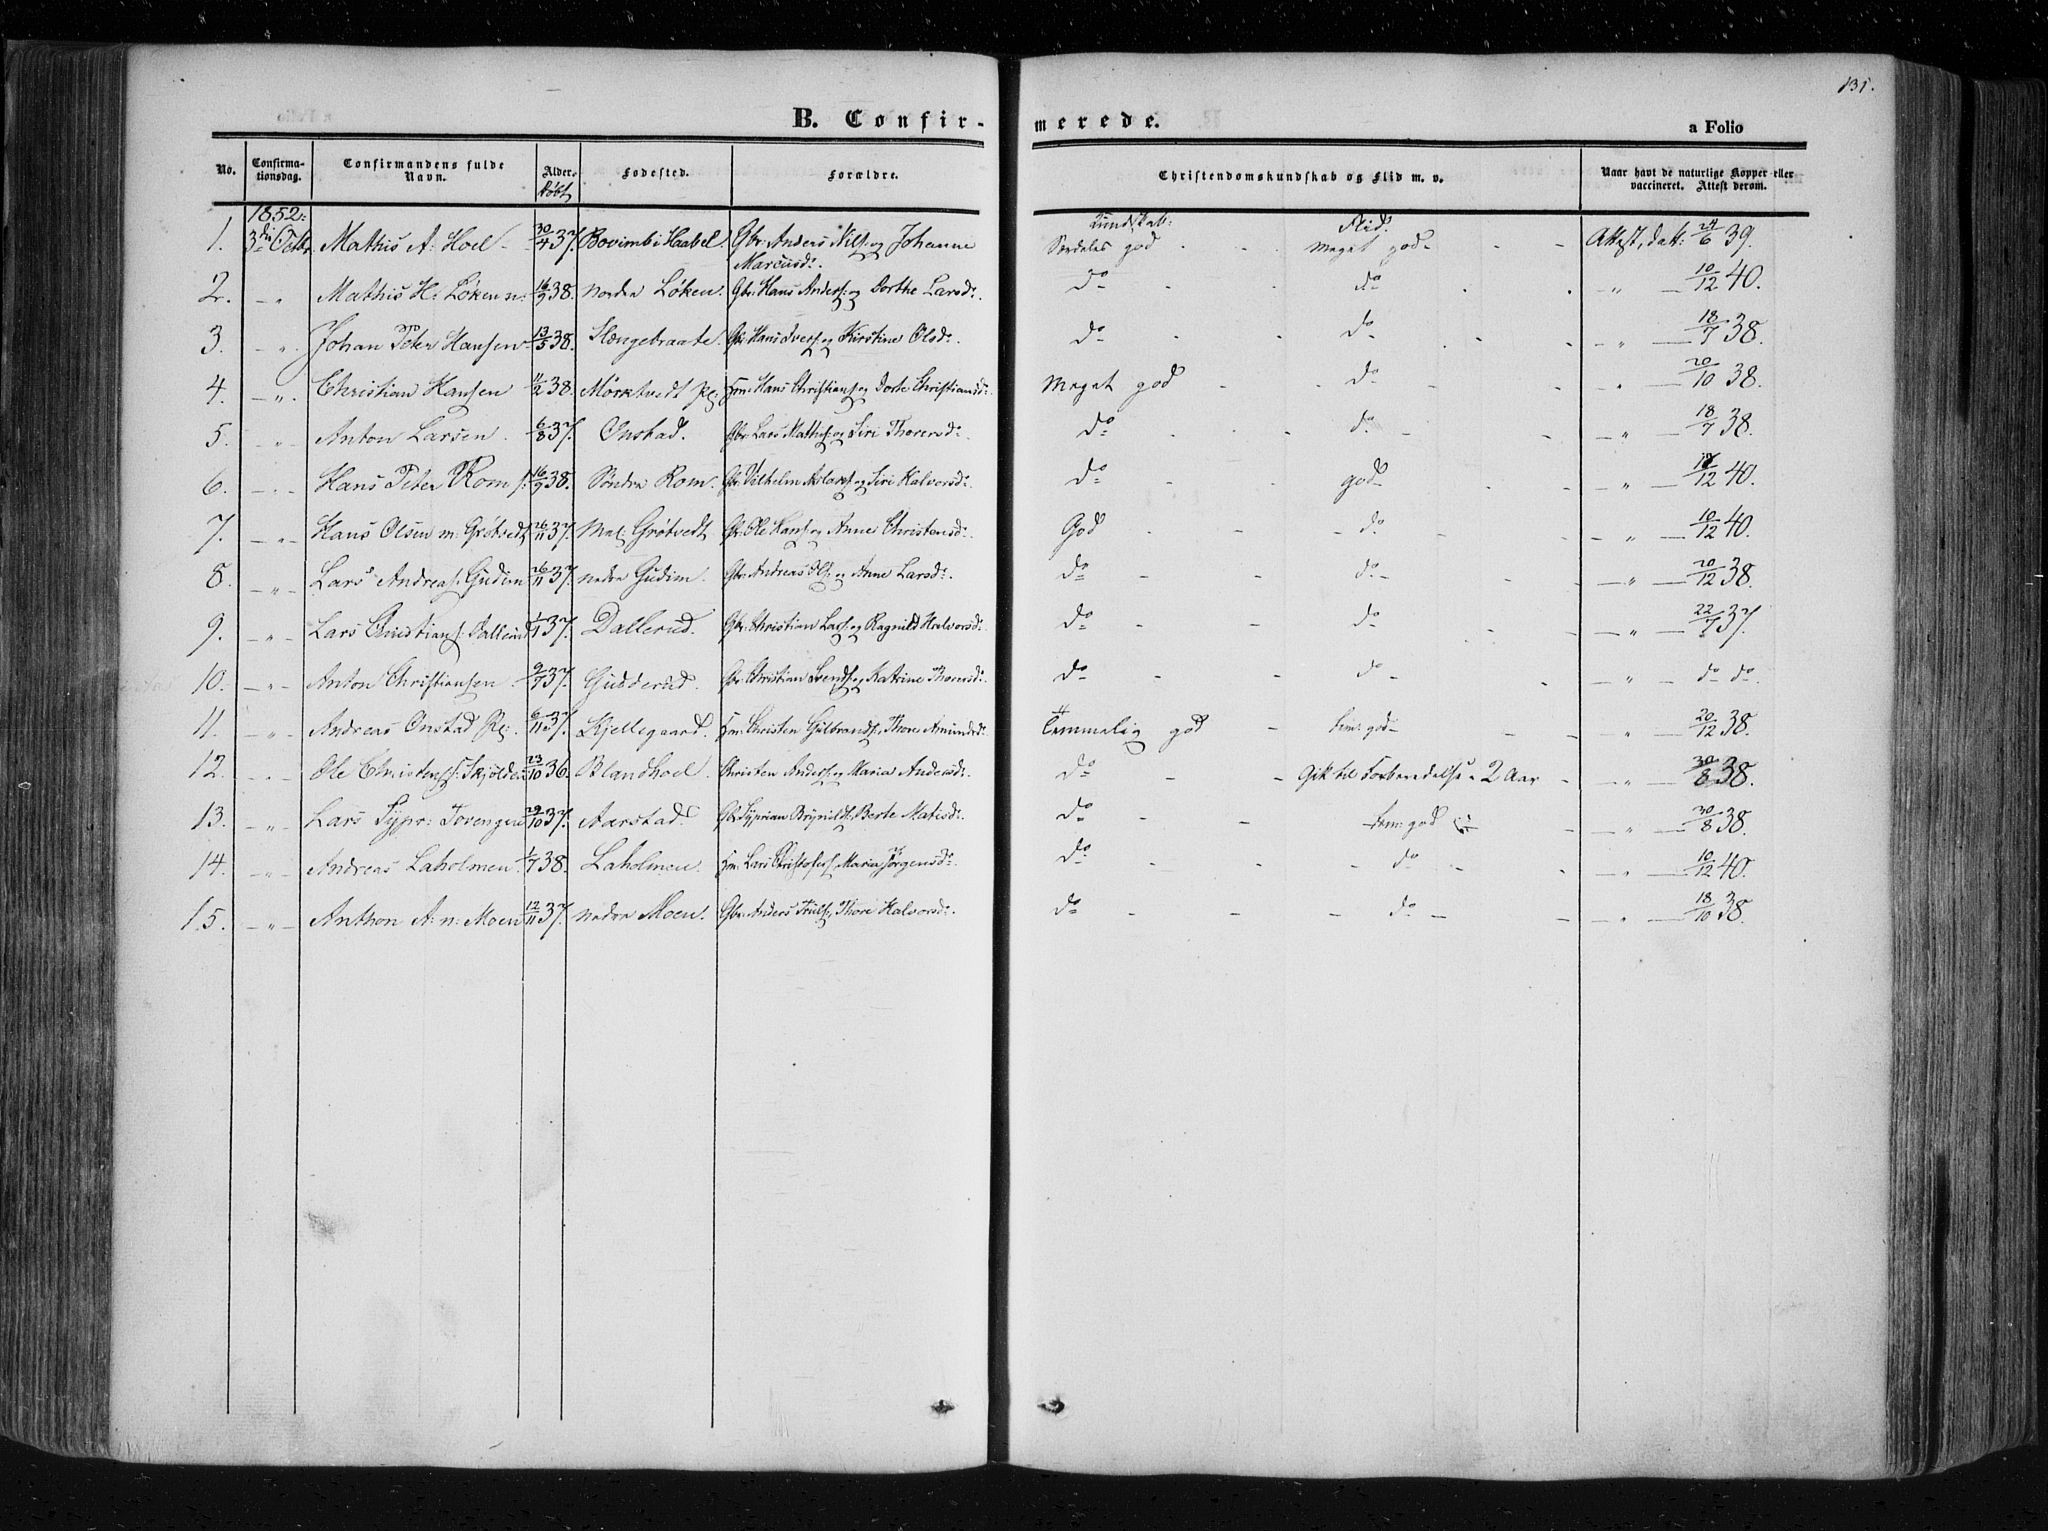 131.
B. Confirmerede.
a Folio
No. Confirmationsdag. Confirmandens fulde Navn. Alder. født Fødested. Forældre. Christendomskundskab og Flid m. v. Naar havt de naturlige Kopper eller vaccineret. Attest derom.
1852: Kundskab: Flid.
1. 3die Octbr Mathis A: Hoel 30/4 37. Bovim i Haabel. Gbr: Anders Nils: og Johanne Marcusdr. Serdeles god Meget god Attest, dat: 24/6 39.
2. " Mathis H: Løken n: 16/9 38. nordre Løken. Gbr: Hans Anders: og Dorthe Larsdr. do do " 10/12 40.
3. " Johan Peter Hansen 13/5 38. Slængebraate. Gbr: Hans Ivers: og Kirstine Olsdr. do do " 18/7 38.
4. " Christian Hansen 11/2 38. Mørktvedt Pl: Hm: Hans Christians: og Dorte Christiansdr. Meget god do " 20/10 38.
5. " Anton Larsen 6/8 37. Onstad. Gbr: Lars Mathis: og Siri Thorersdr. do do " 18/7 38.
6. " Hans Peter Rom s: 16/9 38. Søndre Rom. Gbr: Vilhelm Aslaks: og Siri Halvorsdr. do god /12 40.
7. " Hans Olsen m: Grøtvedt 26/11 37. Mel: Grøtvedt Gbr: Ole Hans: og Anne Christensdr. God do " 10/12 40.
8. " Lars Andreas: Gudim 26/11 37. nedre Gudim. Gbr: Andreas Ols: og Anne Larsdr. do do " 20/12 38.
9. " Lars Christians: 1/1 37. Dallerud. Gbr: Christian Lars: og Ragnild Halvorsdr. do do " 22/7 37.
10. " Anton Christiansen 9/7 37. Gudderud. Gbr: Christian Svends: og Katrine Thorersdr. do do " do do
11. " Andreas Onstad Pl: 6/11 37. Kjellegaard. Hm: Christen Gulbrands: Thore Amundsdr. Temmelig god tem: god " 20/12 38.
12. " Ole Christens: Skjolden 23/10 36. Blandhoel. Christen Anders: og Maria Andersdr. do Gik til Forberedelse i 2 Aar " 30/8 38.
13. " Lars Sypr: Tovengen 29/10 37. Aarstad. Gbr: Syprian Brynilds: Berte Matisdr. do tem: god " 30/8 38.
14. " Andreas Laholmen 1/7 38. Laholmen. Hm: Lars Christofers: Maria Jørgensdr. do do " 10/12 40.
15. " Anthon A: n: Moen 12/11 37. nedre Moen. Gbr: Anders Truls: Thore Halvorsdr. do do " 18/10 38.